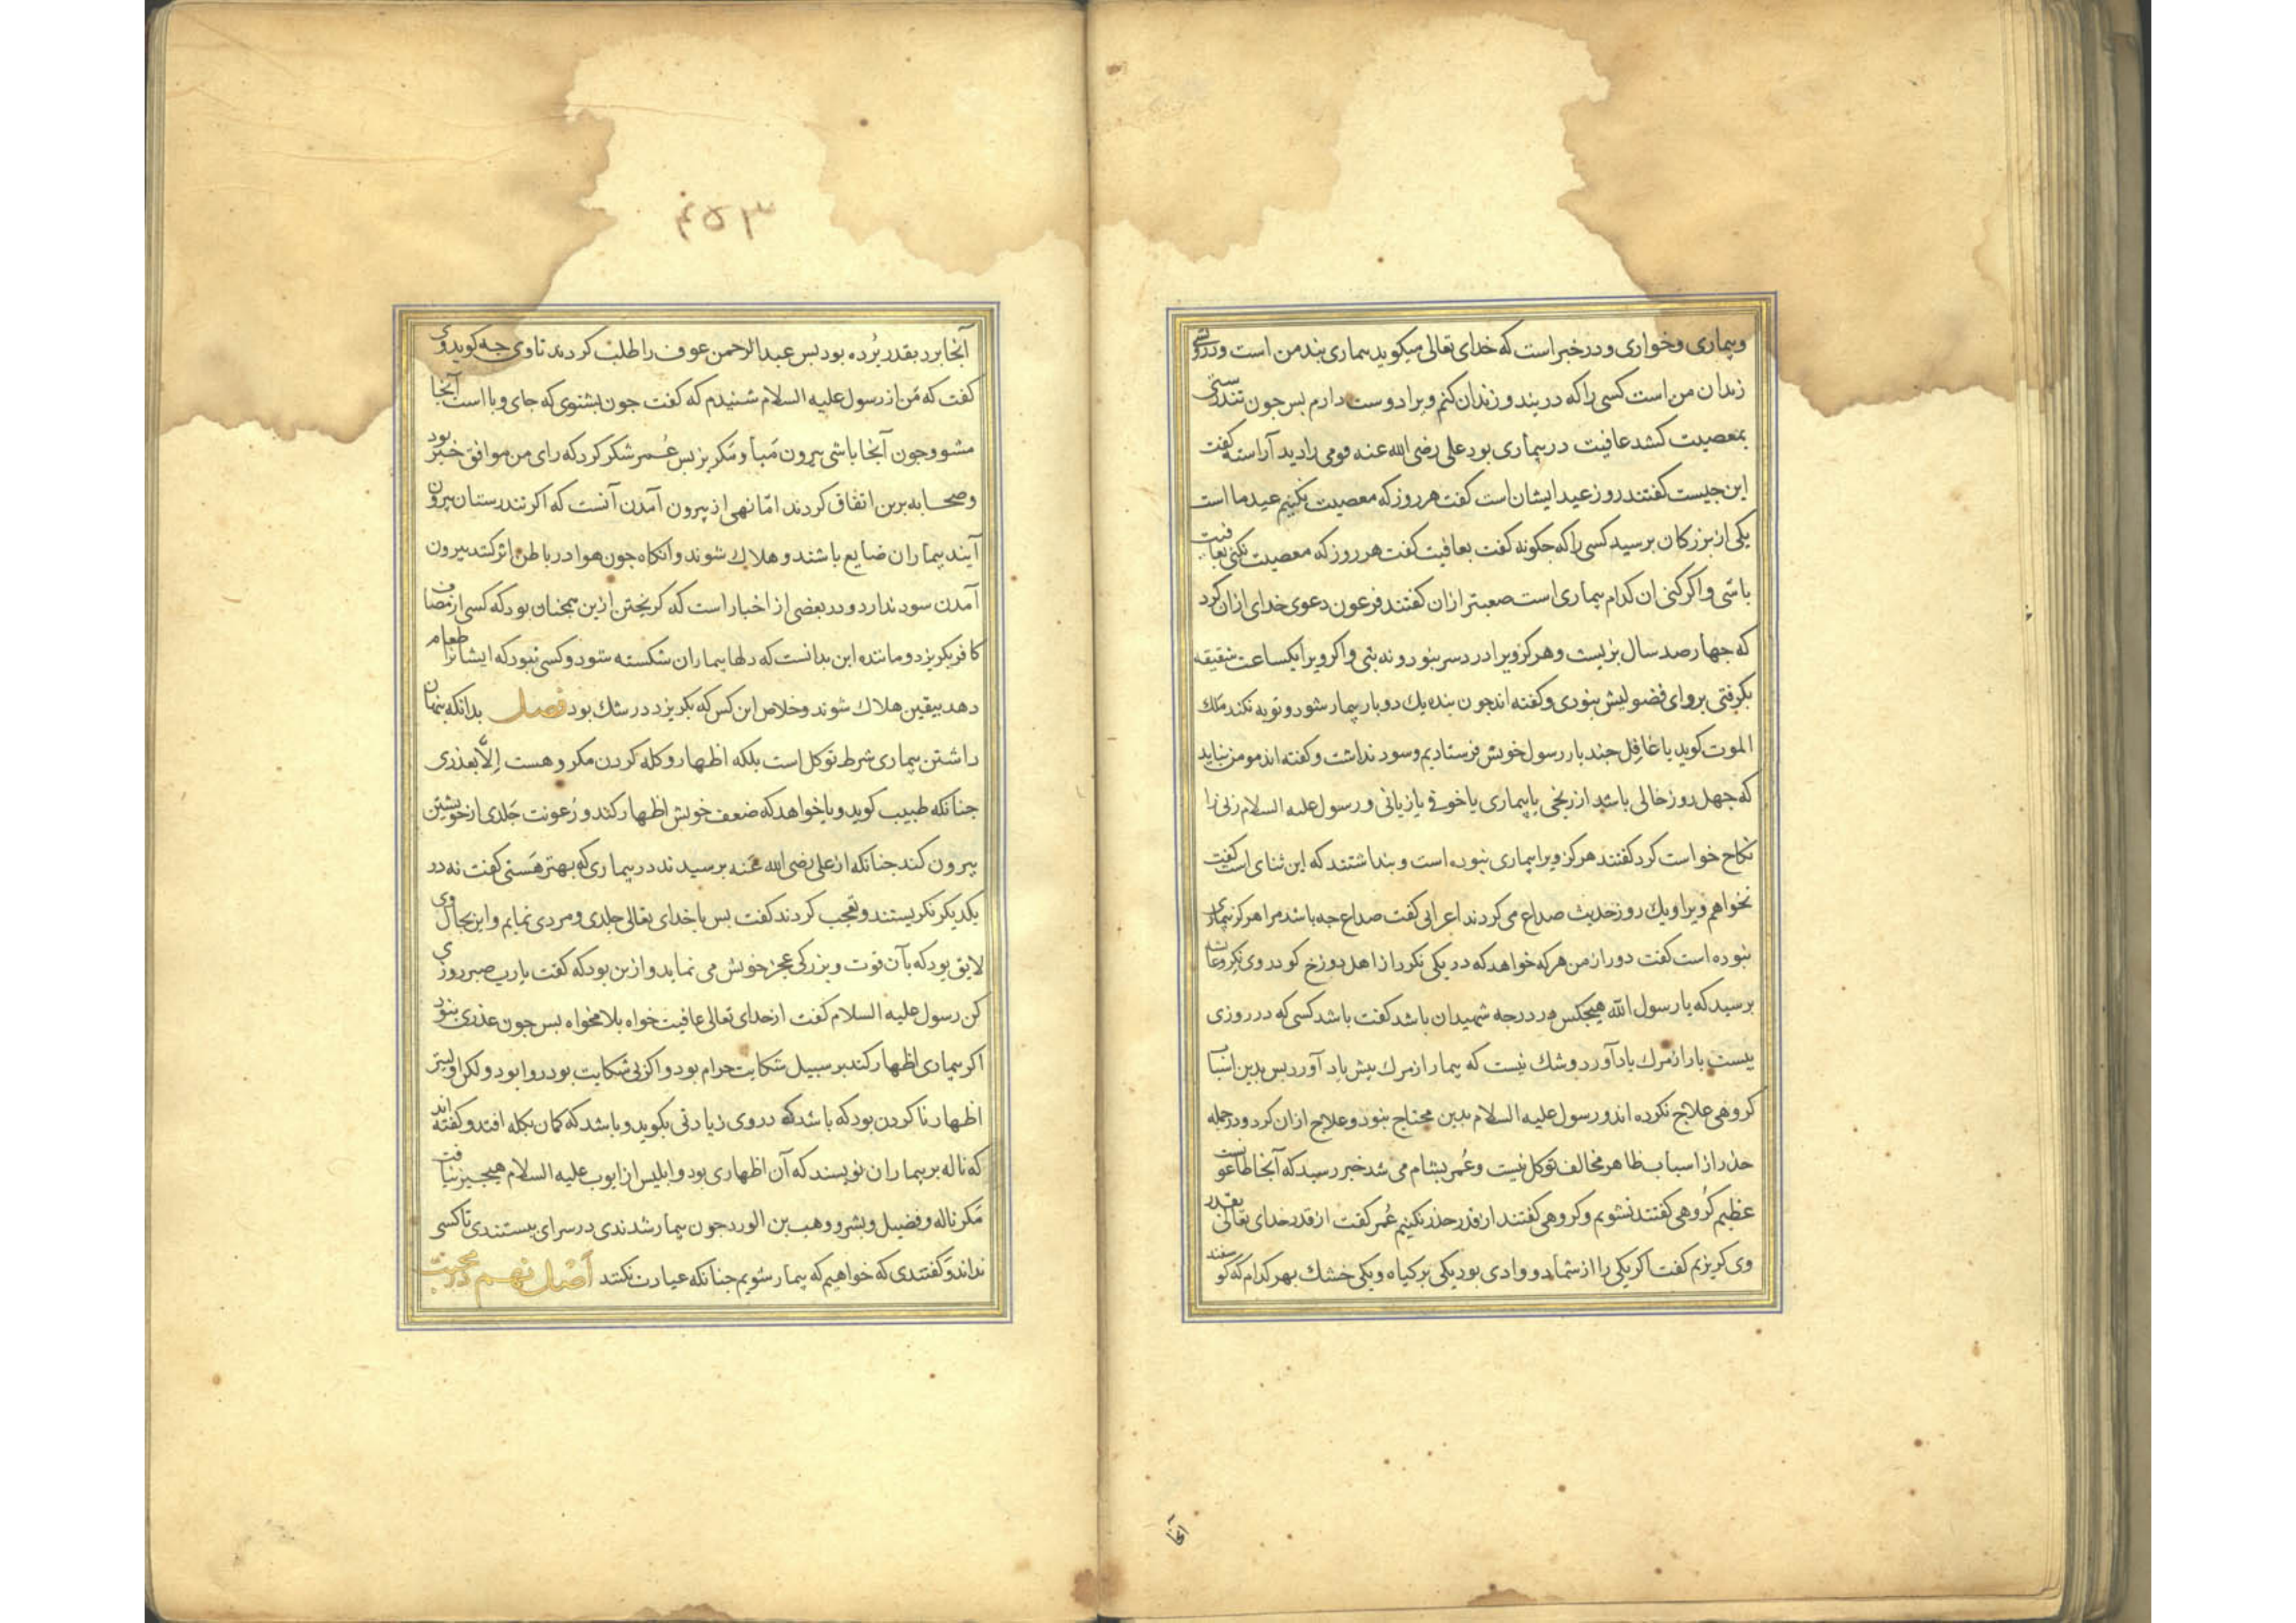 وبیماری وخواری ودر خبر است که خدای تعالی میکوید بیماری بند من است ودرویشی
زندان من است کسی را که در بند وزندان کنم ویرا دوست دارم بس جون تندرستی
بمعصیت کشد عافیت در بیماری بود علی رضی الله عنه قومی را دید آراسته کفت
این جیست کفتند روز عید ایشان است کفت هر روز که معصیت نکنیم عید ما است
یکی از بزرکان برسید کسی را که جکونه کفت بعافیت کفت هر روز که معصیت نکنی بعافیت
باشی واکر کنی ان کدام بیماری است صعبتر ازان کفتند فرعون دعوی خدای ازان کرد
که جهار صد سال بزیست وهرکز ویرا درد سر نبود ونه تبی واکر ویرا یکساعت شقیقه
بکرفتی بروای فضولیش نبودی وکفته اند جون بنده یك دوبار بیمار شود وتوبه نکند ملك
الموت کوید یا غافل جند بار رسول خویش فرستادیم وسود نداشت وکفته اند مومن نباید
که جهل روز خالی باشد از رنجی یا بیماری یا خوفی یا زیانی ورسول علیه السلام زنی را
نکاح خواست کرد کفتند هرکز ویرا بیماری نبوده است وبنداشتند که این ثنای است کفت
نخواهم ویرا ویك روز حدیث صداع می کردند اعرابی کفت صداع جه باشد مرا هرکز بیماری
نبوده است کفت دور از من هرکه خواهد که در یکی نکرد از اهل دوزخ کو در وی نکر وعایشه
برسید که یا رسول الله هیجکس در درجه شهیدان باشد کفت باشد کسی که در روزی
بیست بار از مرك یاد آورد وشك نیست که بیمار از مرك بیش یاد آورد بس بدین اسباب
کروهی علاج نکرده اند ورسول علیه السلام بدین محتاج نبود وعلاج ازان کرد ودرجمله
حذر از اسباب ظاهر مخالف توکل نیست وعُمر بشام می شد خبر رسید که آنجا طاعونست
عظیم کُروهی کفتند نشویم وکروهی کفتند از قدر حذر نکنیم عُمر کفت از قدر خدای تعالی بقدر
وی کریزیم کفت اکر یکی را از شما دو وادی بود یکی بر کیاه ویکی خشك بهر کدام که کوسفند
آنجا
۴۵۳
آنجا برد بقدر بُرده بود بس عبد الرحمن عوف را طلب کردند تا وی جه کوید وی
کفت که من از رسول علیه السلام شنیدم که کفت جون بشنوی که جای وبا است آنجا
مشو وجون آنجا باشی بیرون میا ومکریز بس عُمر شکر کرد که رای من موافق خبر بود
وصحابه برین اتفاق کردند امّا نهی از بیرون آمدن آنست که اکر تندرستان بیرون
آیند بیماران ضایع باشند وهلاك شوند وانکاه جون هوا در باطن اثر کند بیرون
آمدن سود ندارد ودر بعضی از اخبار است که کریختن ازین همجنان بود که کسی از مصاف
کافر بکریزد ومانند این بدانست که دلها بیماران شکسته شود وکسی نبود که ایشانرا طعام
دهد بیقین هلاك شوند وخلاص این کس که بکریزد در شك بود فصل بدانکه بنهان
داشتن بیماری شرط توکل است بلکه اظهار وکله کردن مکروهست اِلّا بعذری
جنانکه طبیب کوید ویا خواهد که ضعف خویش اظهار کند ورُعونت جَلدی از خویشتن
بیرون کند جنانکه از علی رضی الله عَنه برسیدند در بیماری که بهتر هَستی کفت نه در
یکدیکر نکریستند وتعجب کردند کفت بس با خدای تعالی جلدی ومردی نمایم واین بحال وی
لایق بود که بآن قوت وبزرکی عجز خویش می نماید وازین بود که کفت یارب صبر روزی
کن رسول علیه السلام کفت از خدای تعالی عافیت خواه بلا مخواه بس جون عذری نبود
اکر بیماری اظهار کند بر سبیل شکایت حرام بود واکر بی شکایت بود روا بود ولکن اولیتر
اظهار ناکردن بود که باشد که در وی زیادتی بکوید وباشد که کمان بکله افتد وکفته اند
که ناله بر بیماران نویسند که آن اظهاری بود وابلیس از ایوب علیه السلام هیجیز نیافت
مَکر ناله وفضیل وبشر ووهب بن الورد جون بیمار شدندی در سرای ببستندی تا کسی
نداند وکفتندی که خواهیم که بیمار شویم جنانکه عیادت نکنند اَصْل نهم در محبّت